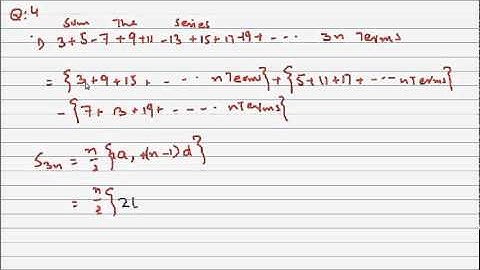 Q:4
Sum The Series
1) 3+5-7+9+11-13+15+17-19+ --- 3n Terms
= {3+9+15+ - --- n Terms} + {5+11+17+ --- n Terms}
- {7+13+19+ ---- n Terms}
S3n = n/2 {2a, +(n-1)d}
= n/2 {2(